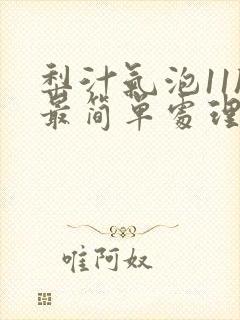 梨汁氣泡11
最简单處理
唯阿奴